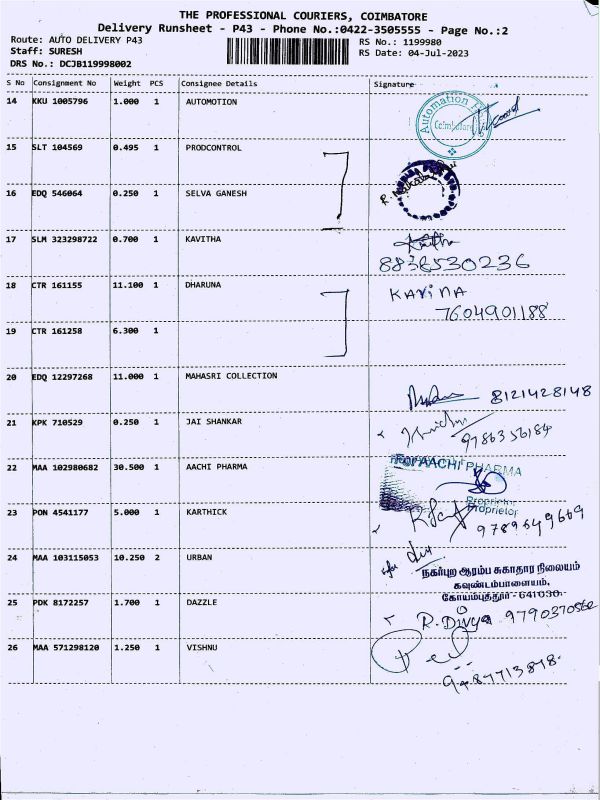 THE PROFESSIONAL COURIERS, COIMBATORE
Delivery Runsheet - P43 - Phone No.:0422-3505555 - Page No.:2
Route: AUTO DELIVERY P43
RS No.: 1199980
Staff: SURESH
RS Date: 04-Jul-2023
DRS No.: DCJB119998002
S No Consignment No Weight PCS Consignee Details Signature
14 KKU 1005796 1.000 1 AUTOMOTION
Automation
Coimbatore
15 SLT 104569 0.495 1 PRODCONTROL
16 EDQ 546064 0.250 1 SELVA GANESH
17 SLM 323298722 0.700 1 KAVITHA
8838530236
18 CTR 161155 11.100 1 DHARUNA KAVINA
7604901188
19 CTR 161258 6.300 1
20 EDQ 12297268 11.000 1 MAHASRI COLLECTION
8121428148
21 KPK 710529 0.250 1 JAI SHANKAR
9786356184
22 MAA 102980682 30.500 1 AACHI PHARMA
For AACHI PHARMA
Proprietor
Proprietor
23 PON 4541177 5.000 1 KARTHICK
9789649669
24 MAA 103115053 10.250 2 URBAN
நகர்புற ஆரம்ப சுகாதார நிலையம்
கவுண்டம்பாளையம்,
கோயம்புத்தூர் - 641030.
25 PDK 8172257 1.700 1 DAZZLE
R. Divya 9790370562
26 MAA 571298120 1.250 1 VISHNU
9487713878.